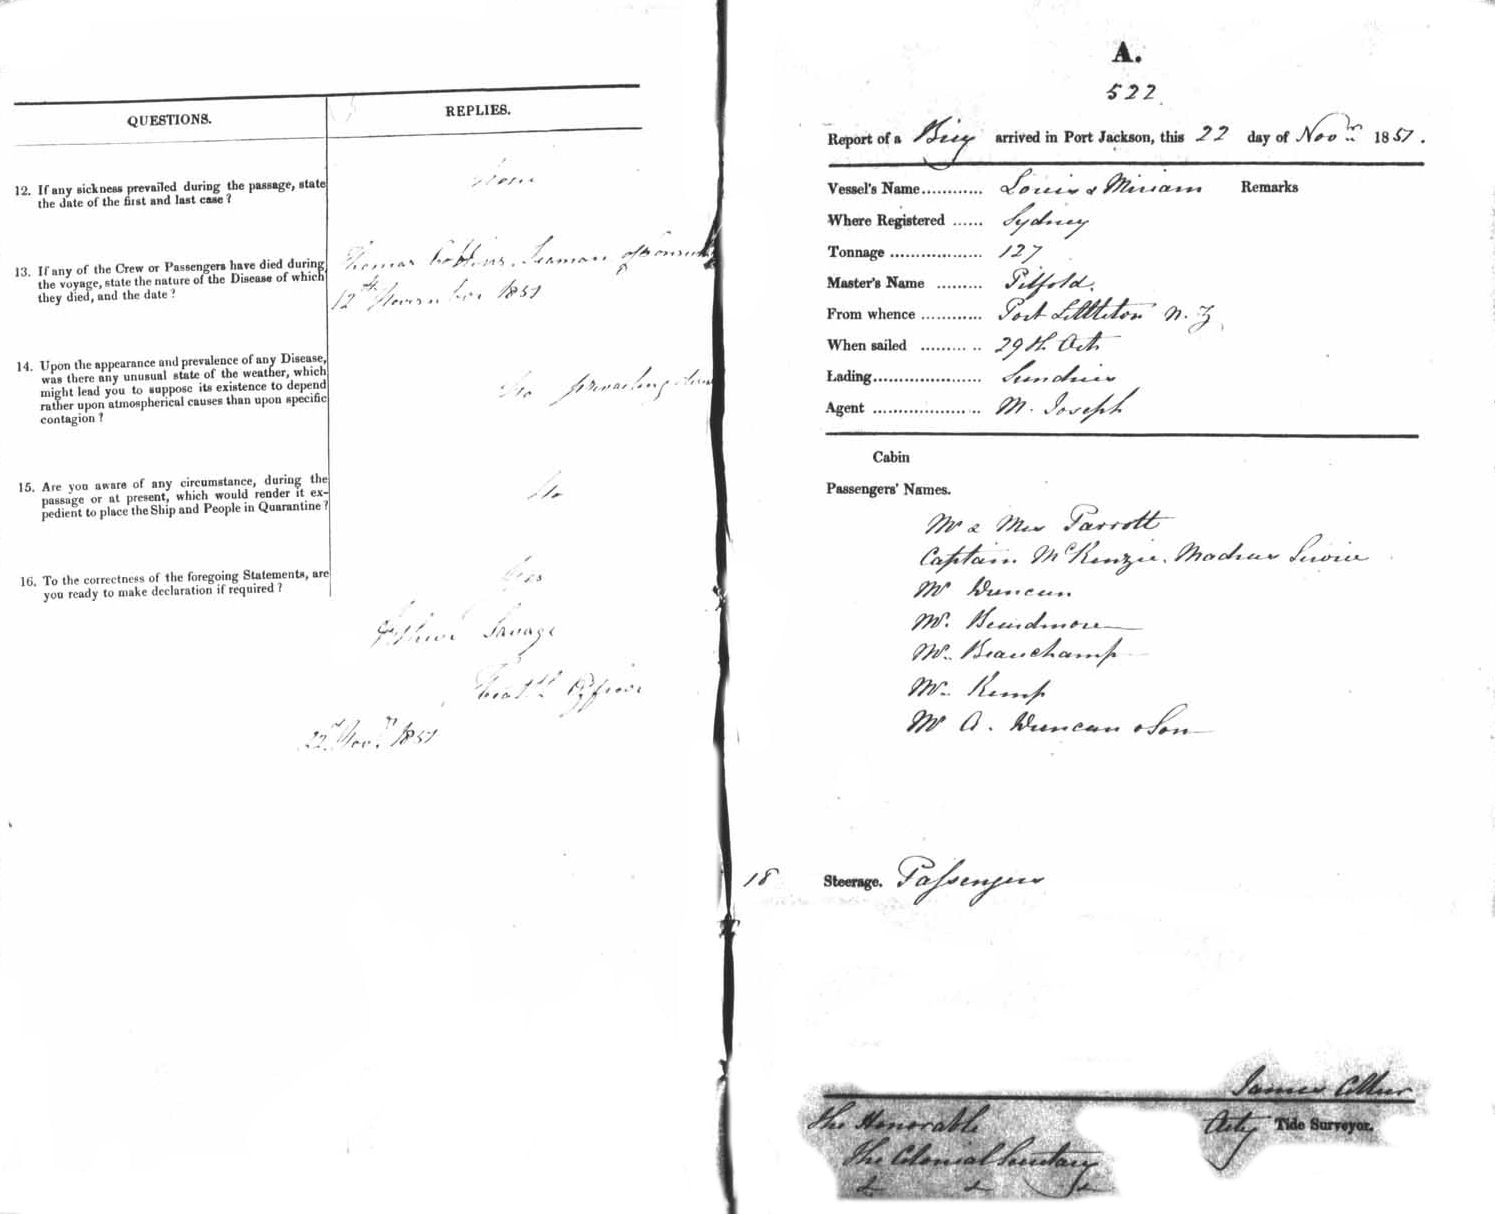 QUESTIONS.
REPLIES.
12. If any sickness prevailed during the passage, state
the date of the first and last case?
None
13. If any of the Crew or Passengers have died during
the voyage, state the nature of the Disease of which
they died, and the date?
Thomas Seaman of
12th November 1851
14. Upon the appearance and prevalence of any Disease,
was there any unusual state of the weather, which
might lead you to suppose its existence to depend
rather upon atmospherical causes than upon specific
contagion?
No prevailing
15. Are you aware of any circumstance, during the
passage or at present, which would render it ex-
pedient to place the Ship and People in Quarantine?
No
16. To the correctness of the foregoing Statements, are
you ready to make declaration if required?
Yes
Savage
Health Officer
22d Novr 1851
A.
522
Report of a Brig arrived in Port Jackson, this 22 day of Novr 1851.
Vessel's Name............ Louis & Miriam Remarks
Where Registered ...... Sydney
Tonnage ................... 127
Master's Name ......... Pilfold.
From whence ............ Port Lyttleton N. Z
When sailed ......... .. 29th Oct
Lading...................... Sundries
Agent ..................... M. Joseph
Cabin
Passengers' Names.
Mr & Mrs Parrott
Captain McKenzie. Madras Service
Mr Duncan
Mr. Beardmore
Mr. Beauchamp
Mr. Kemp
Mr A. Duncan & Son
18 Steerage. Passengers
James
Actg Tide Surveyor.
The Honorable
The Colonial Secretary
& & &